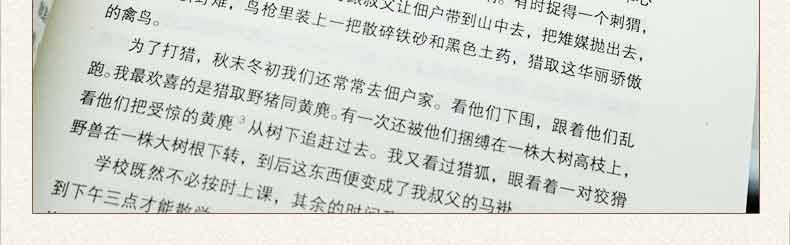 有时捉得一个刺猬,
叔父让佃户带到山中去,把雉媒抛出去,
野雉,鸟枪里装上一把散碎铁砂和黑色土药,猎取这华丽骄傲
的禽鸟。
为了打猎,秋末冬初我们还常常去佃户家。看他们下围,跟着他们乱
跑。我最欢喜的是猎取野猪同黄麂。有一次还被他们捆缚在一株大树高枝上,
看他们把受惊的黄麂3从树下追赶过去。我又看过猎狐,眼看着一对狡猾
野兽在一株大树根下转,到后这东西便变成了我叔父的马褂。
学校既然不必按时上课,其余的时间
到下午三点才能散学